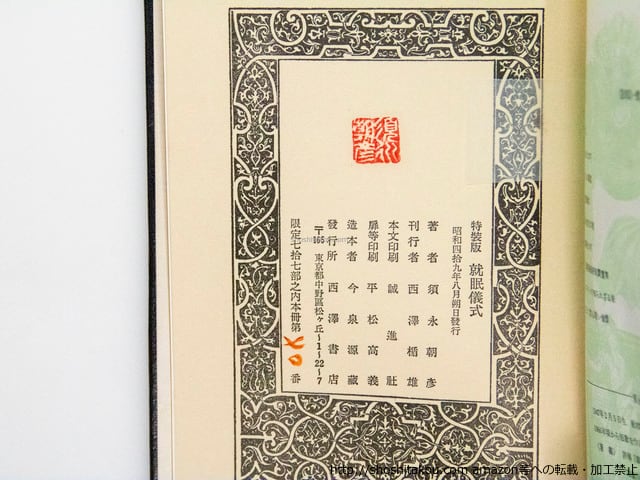 須永朝彦
特装版 就眠儀式
昭和四拾九年八月朔日發行
著者 須永朝彦
刊行者 西澤楯雄
本文印刷 誠進社
扉等印刷 平松高義
造本者 今泉源藏
發行所 西澤書店
〒165 東京都中野區松ヶ丘1〜22〜7
限定七拾七部之内本冊第 OK 番
http://shoshitakou.com amazon等への転載・加工禁止